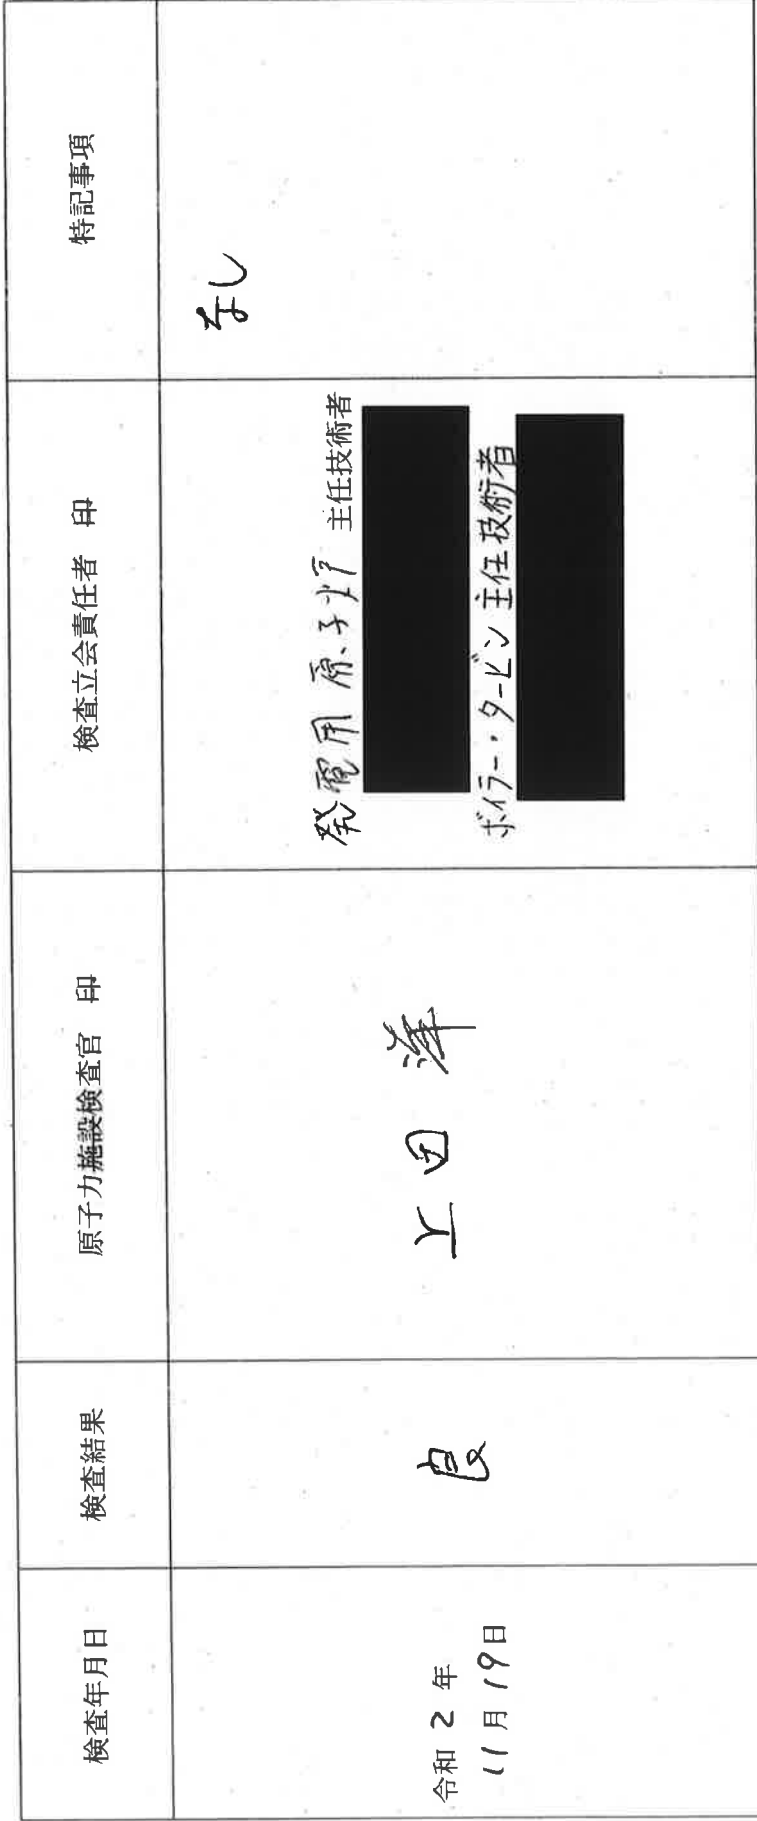 検査年月日
検査結果
原子力施設検査官 印
検査立会責任者 印
特記事項
令和 2 年
11月19日
良
上田 洋
発電用原子炉 主任技術者
ボイラー・タービン主任技術者
なし